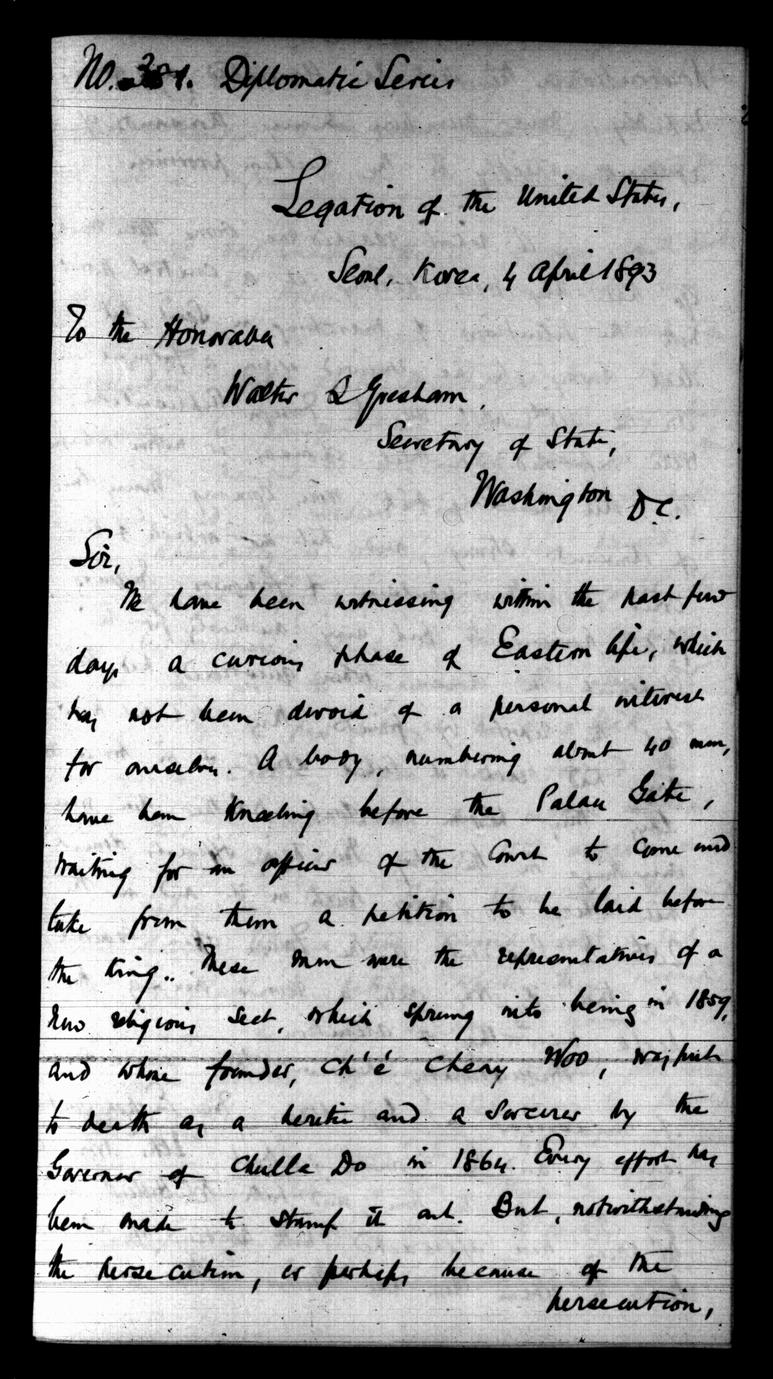 No. 381. Diplomatic Series
Legation of the United States,
Seoul, Korea, 4 April 1893
To the Honorable
Walter Q Gresham,
Secretary of State,
Washington D.C.
Sir,
We have been witnessing within the past few
days a curious phase of Eastern life, which
has not been devoid of a personal interest
for ourselves. A body, numbering about 40 men,
have been kneeling before the Palace Gate,
waiting for an officer of the Court to come and
take from them a petition to be laid before
the King. These men were the representatives of a
new religious sect, which sprung into being in 1859,
and whose founder, Ch'é Cheny Woo, was put
to death as a heretic and a sorcerer by the
Governor of Chulla Do in 1864. Every effort has
been made to stamp it out. But, notwithstanding
the persecution, or perhaps because of the
persecution,